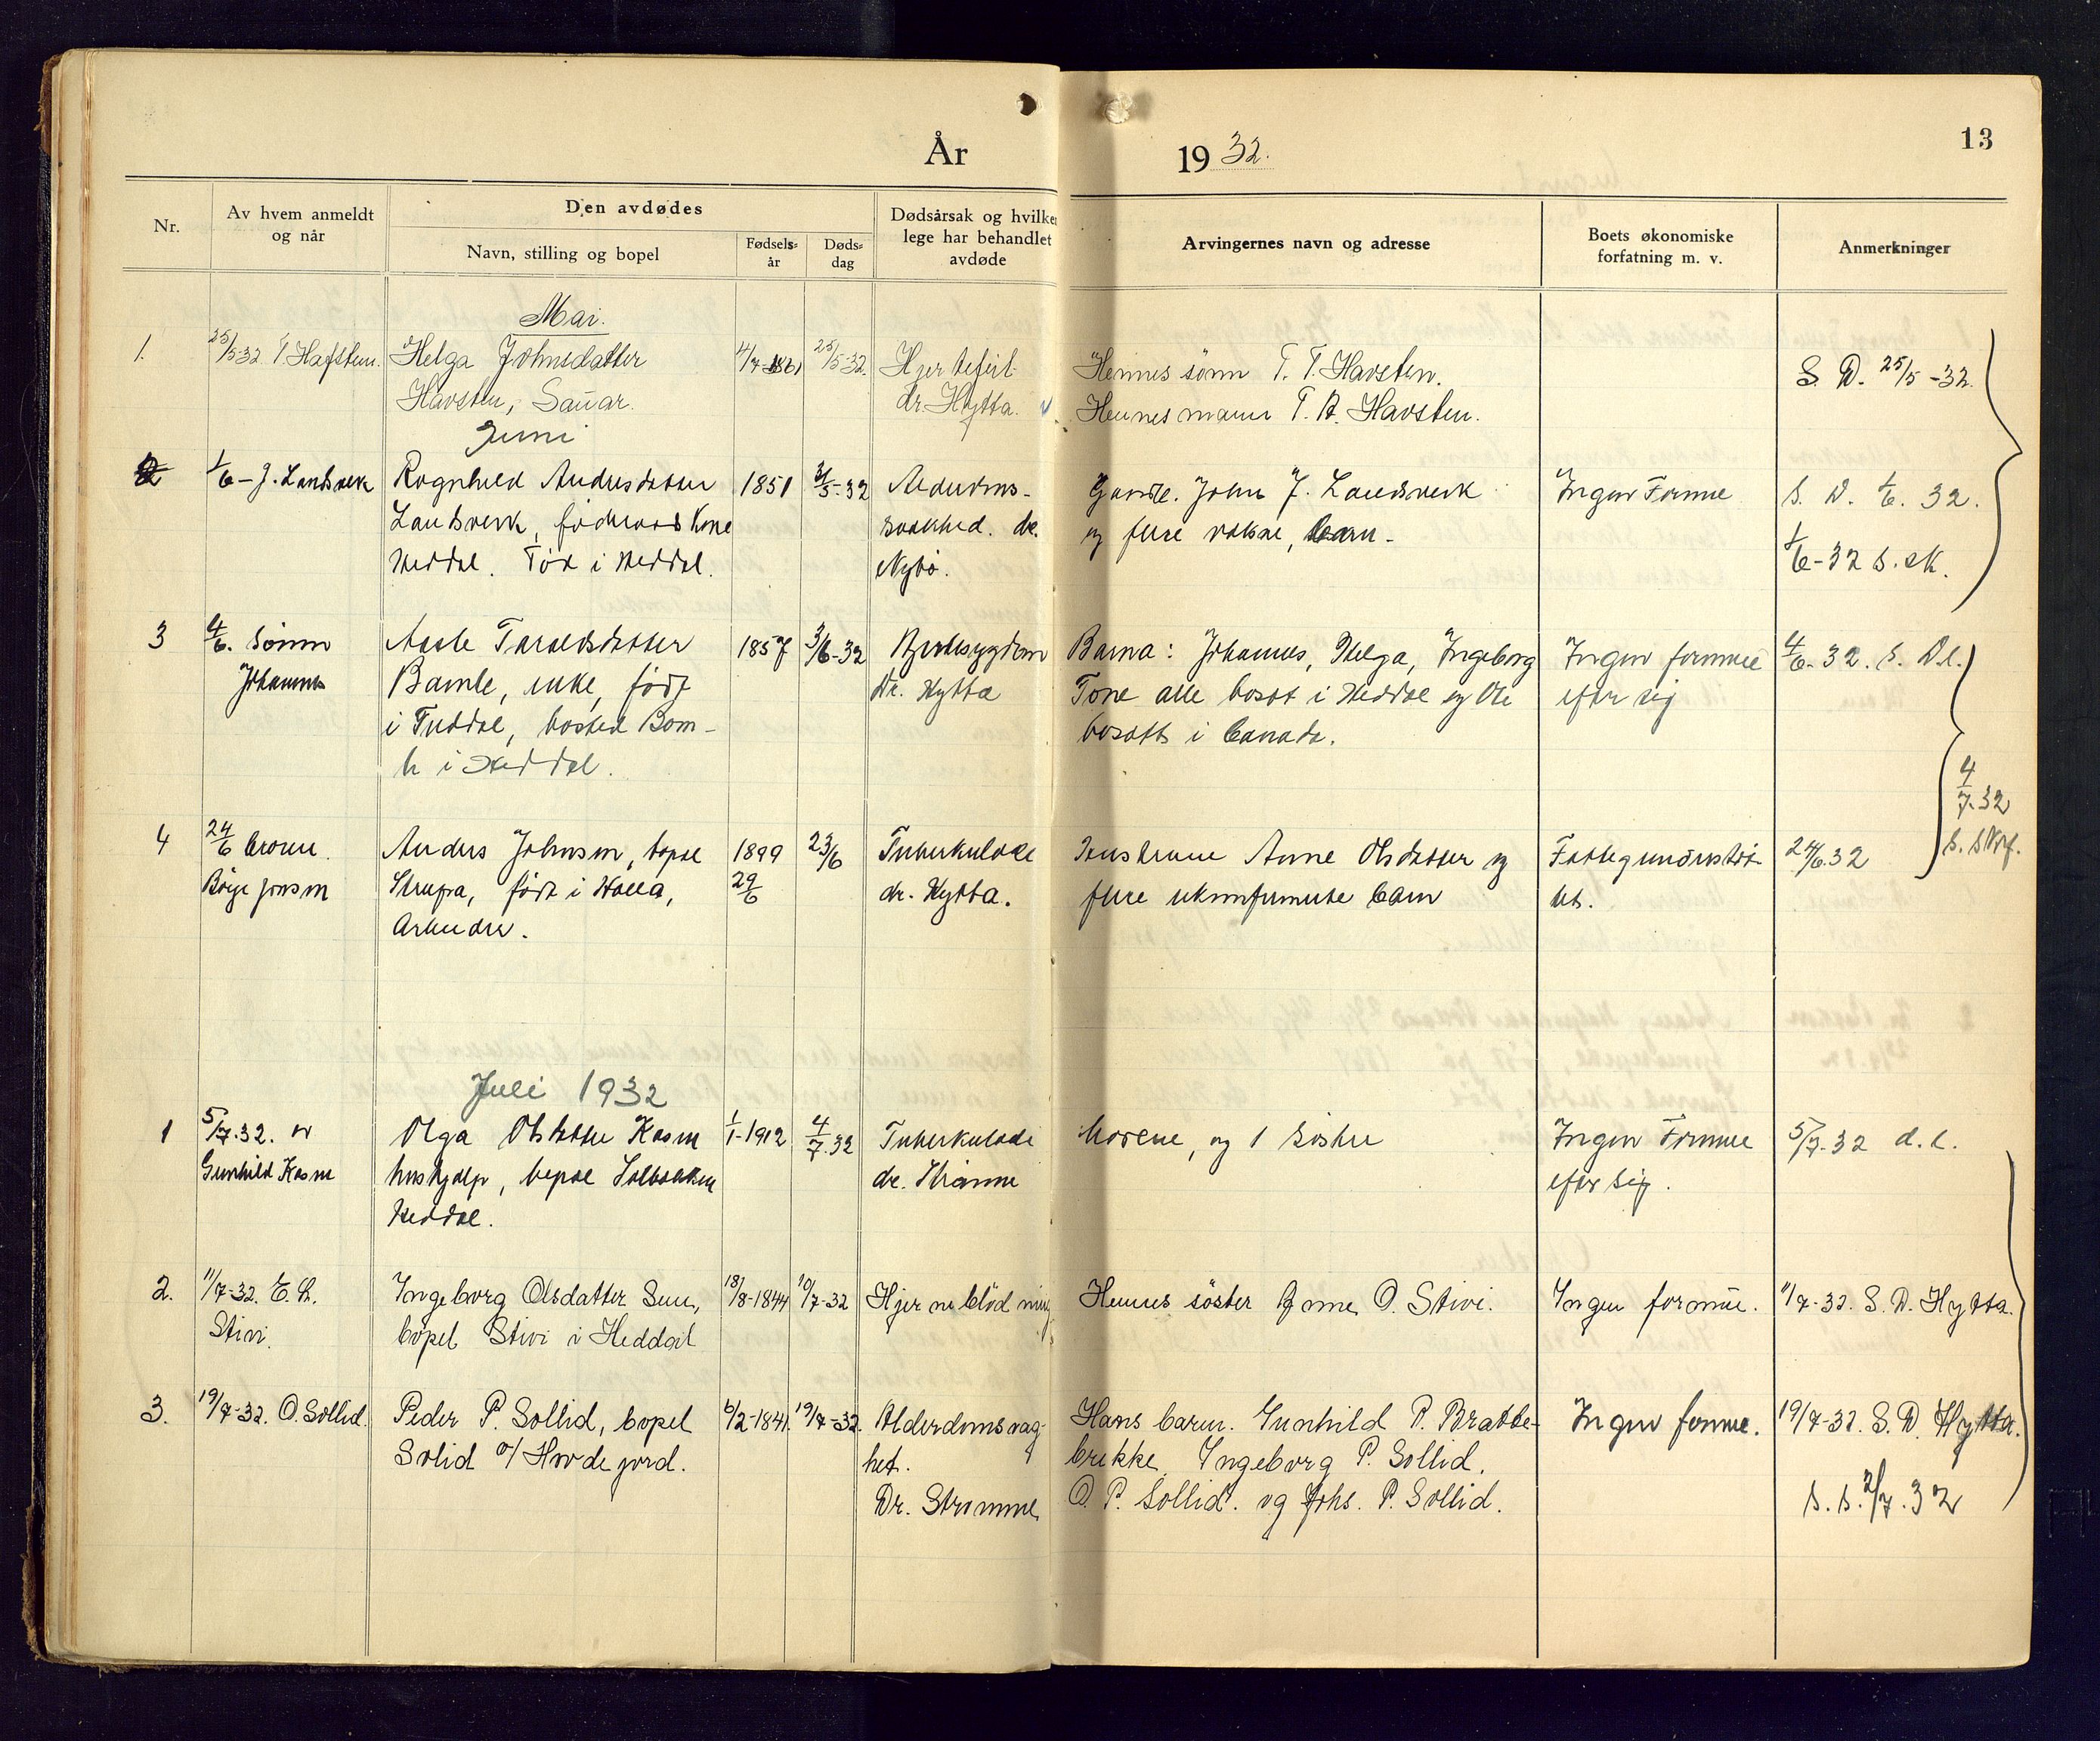 År 1932.
13
Nr.
Av hvem anmeldt
og når
Den avdødes
Navn, stilling og bopel
Fødsels-
år
Døds-
dag
Dødsårsak og hvilken
lege har behandlet
avdøde
Arvingernes navn og adresse
Boets økonomiske
forfatning m. v.
Anmerkninger
Mai.
1.
25/5 32 T. Hafsten.
Helga Johnsdatter
Havsten, Sauar.
4/7-1861
25/5-32.
Hjertefeil
dr. Hytta.
Hennes sønn T. T. Havsten.
Hennes mann T. A. Havsten.
S. D. 25/5-32.
Juni
2
1/6 - J. Landsverk
Rognhild Andresdatter
Landsverk, føderaadskone
Heddal. Fød i Heddal.
1851
31/5-32
Alderdoms-
svakhed. dr.
Nybø.
Gardbr. John J. Landsverk
og flere voksne, barn.
Ingen Formue
S. D. 1/6. 32.
1/6-32 S. sk.
3
4/6. Sønnen
Johannes
Aasle Taraldsdatter
Bamle, enke, født
i Tuddal, bosted Bam-
le i Heddal.
1857
3/6-32
Hjertesygdom
Dr. Hytta
Barna: Johannes, Helga, Ingeborg
Tone alle bosat i Heddal og Ole
bosatt i Canada.
Ingen formue
efter sig
4/6-32. S. D.l.
4/7.32
S. Skrf.
4
24/6 broren
Børge Jonsen
Anders Johnsen, bopæl
Strupa, født i Holla,
Arbeider.
1899
29/6
23/6
Tuberkulose
dr. Hytta.
Hustruen Anne Olsdatter og
flere ukonfirmerte barn
Fattigunderstøt-
tet.
24/6.32
Juli 1932
1
5/7.32. av
Gunhild Kasin
Olga Olsdatter Kasin
hushjælp, bopæl Solbakken
Heddal.
1/1-1912
4/7.32
Tuberkulose
dr. Strømme
Moren, og 1 søster
Ingen Formue
efter sig.
5/7-32 d.l.
2.
11/7-32. E. H.
Stivi.
Ingeborg Olsdatter Sem,
bopel Stivi i Heddal
18/8-1844
10/7-32
Hjerneblødning
Hennes søster Gunne O. Stivi.
Ingen formue.
11/7-32. S. D. Hytta.
3.
19/7-32. O. Sollid.
Peder P. Sollid, bopel
Solid o/ Hovdejord.
6/2-1841.
19/7-32.
Alderdomsvag-
het.
Dr. Strømme
Hans barn. Gunhild P. Bratte-
brekke, Ingeborg P. Sollid,
O. P. Sollid. og Johs. P. Sollid.
Ingen formue.
19/7-32. S. D. Hytta.
S. S. 2/7.32